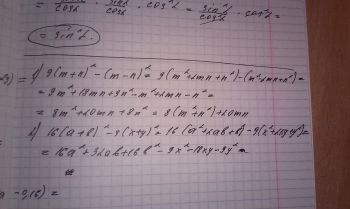 = sin²α/cosα · sinα/cosα · cos²α = sin²α/cos²α · cos²α =
= sin²α
1) 9(m+n)² - (m-n)² = 9(m²+2mn+n²) - (m²-2mn+n²) =
= 9m²+18mn+9n²-m²+2mn-n² =
= 8m²+20mn+8n² = 8(m²+n²)+20mn
2) 16(a+b)² - 9(x+y)² = 16(a²+2ab+b²) - 9(x²+2xy+y²) =
= 16a²+32ab+16b²-9x²-18xy-9y² =
a - 0,16) =